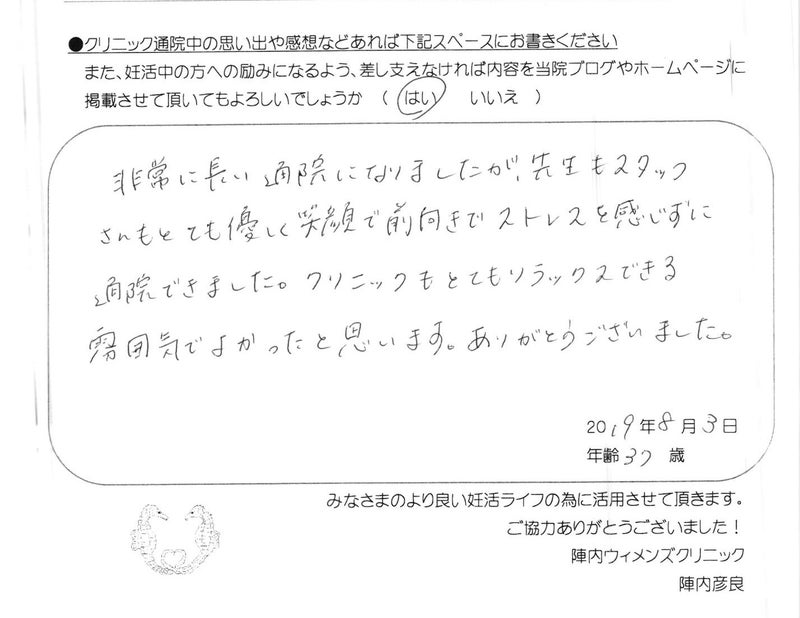 ●クリニック通院中の思い出や感想などあれば下記スペースにお書きください
また、妊活中の方への励みになるよう、差し支えなければ内容を当院ブログやホームページに
掲載させて頂いてもよろしいでしょうか （ はい　いいえ ）
非常に長い通院になりましたが、先生もスタッフ
さんもとても優しく笑顔で前向きでストレスを感じずに
通院できました。クリニックもとてもリラックスできる
雰囲気でよかったと思います。ありがとうございました。
2019年8月3日
年齢37歳
みなさまのより良い妊活ライフの為に活用させて頂きます。
ご協力ありがとうございました！
陣内ウィメンズクリニック
陣内彦良